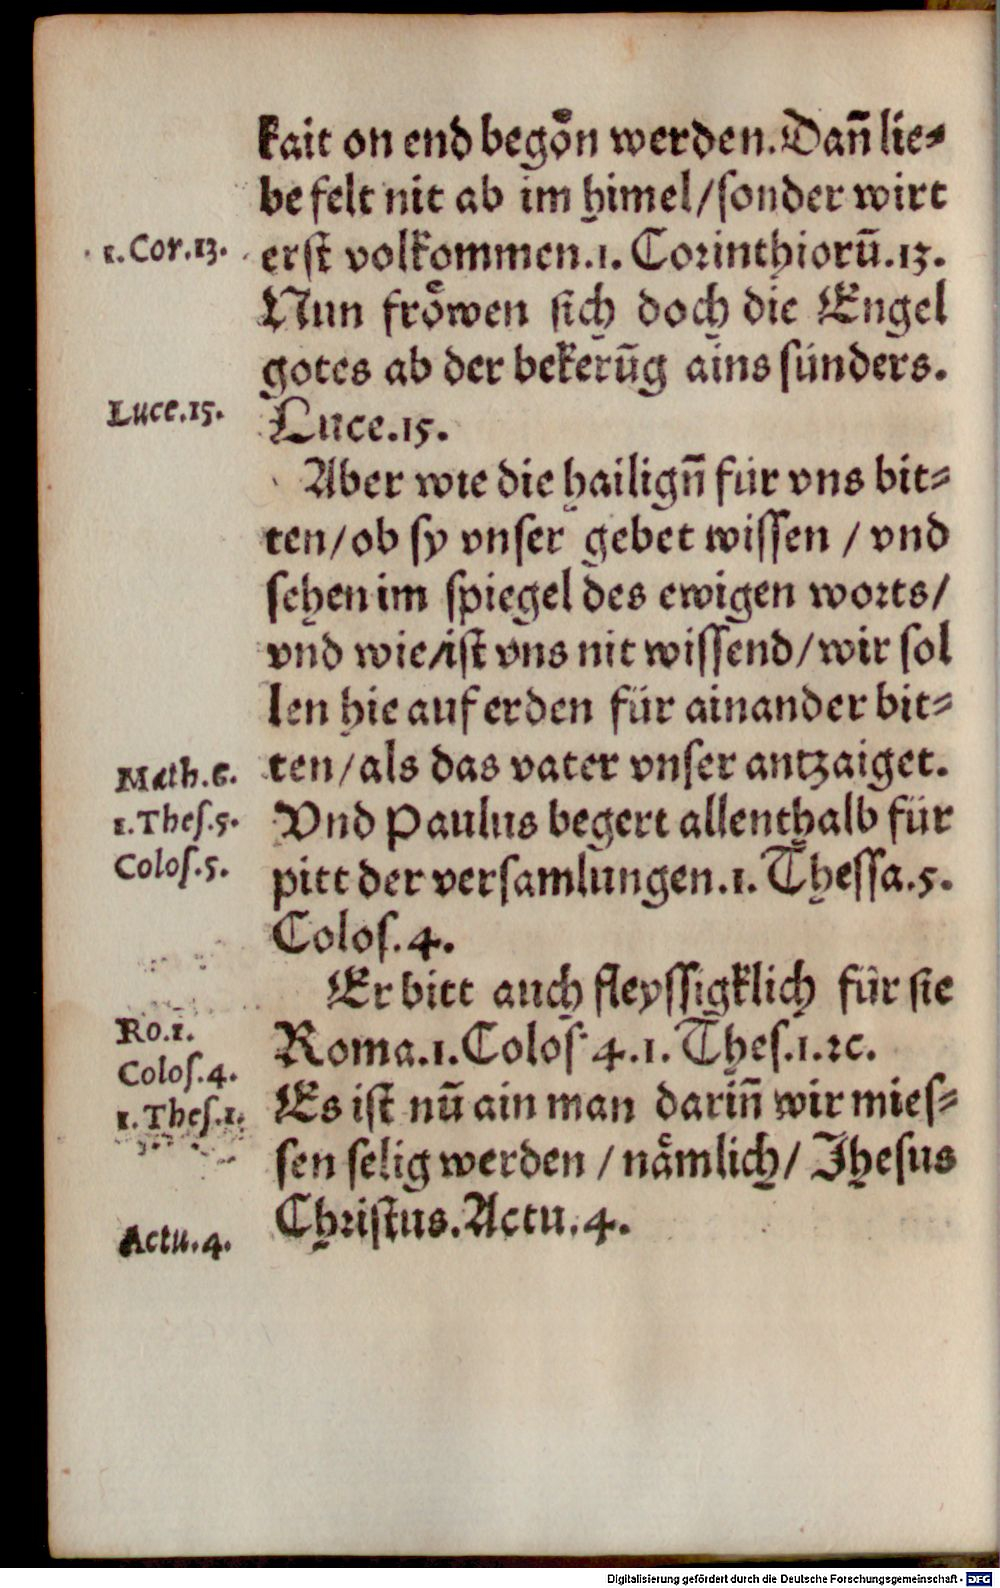 kait on end begoͤn werden. Dañ lie⸗
be felt nit ab im himel/ sonder wirt
1. Cor. 13.
erst volkommen. 1. Corinthiorū. 13.
Nun froͤwen sich doch die Engel
gotes ab der bekerūg ains sünders.
Luce. 15.
Luce. 15.
Aber wie die hailign̄ für vns bit⸗
ten/ ob sy vnser gebet wissen / vnd
sehen im spiegel des ewigen worts/
vnd wie/ ist vns nit wissend/ wir sol
len hie auf erden für ainander bit⸗
Math. 6.
ten/ als das vater vnser antzaiget.
1. Thes. 5.
Vnd Paulus begert allenthalb für
Colos. 5.
pitt der versamlungen. 1. Thessa. 5.
Colos. 4.
Er bitt auch fleyssigklich für sie
Ro. 1.
Roma. 1. Colos. 4. 1. Thes. 1. ꝛc.
Colos. 4.
Es ist nū ain man darin̄ wir mies⸗
1. Thes. 1.
sen selig werden / naͤmlich/ Jhesus
Christus. Actu. 4.
Actu. 4.
Digitalisierung gefördert durch die Deutsche Forschungsgemeinschaft - DFG